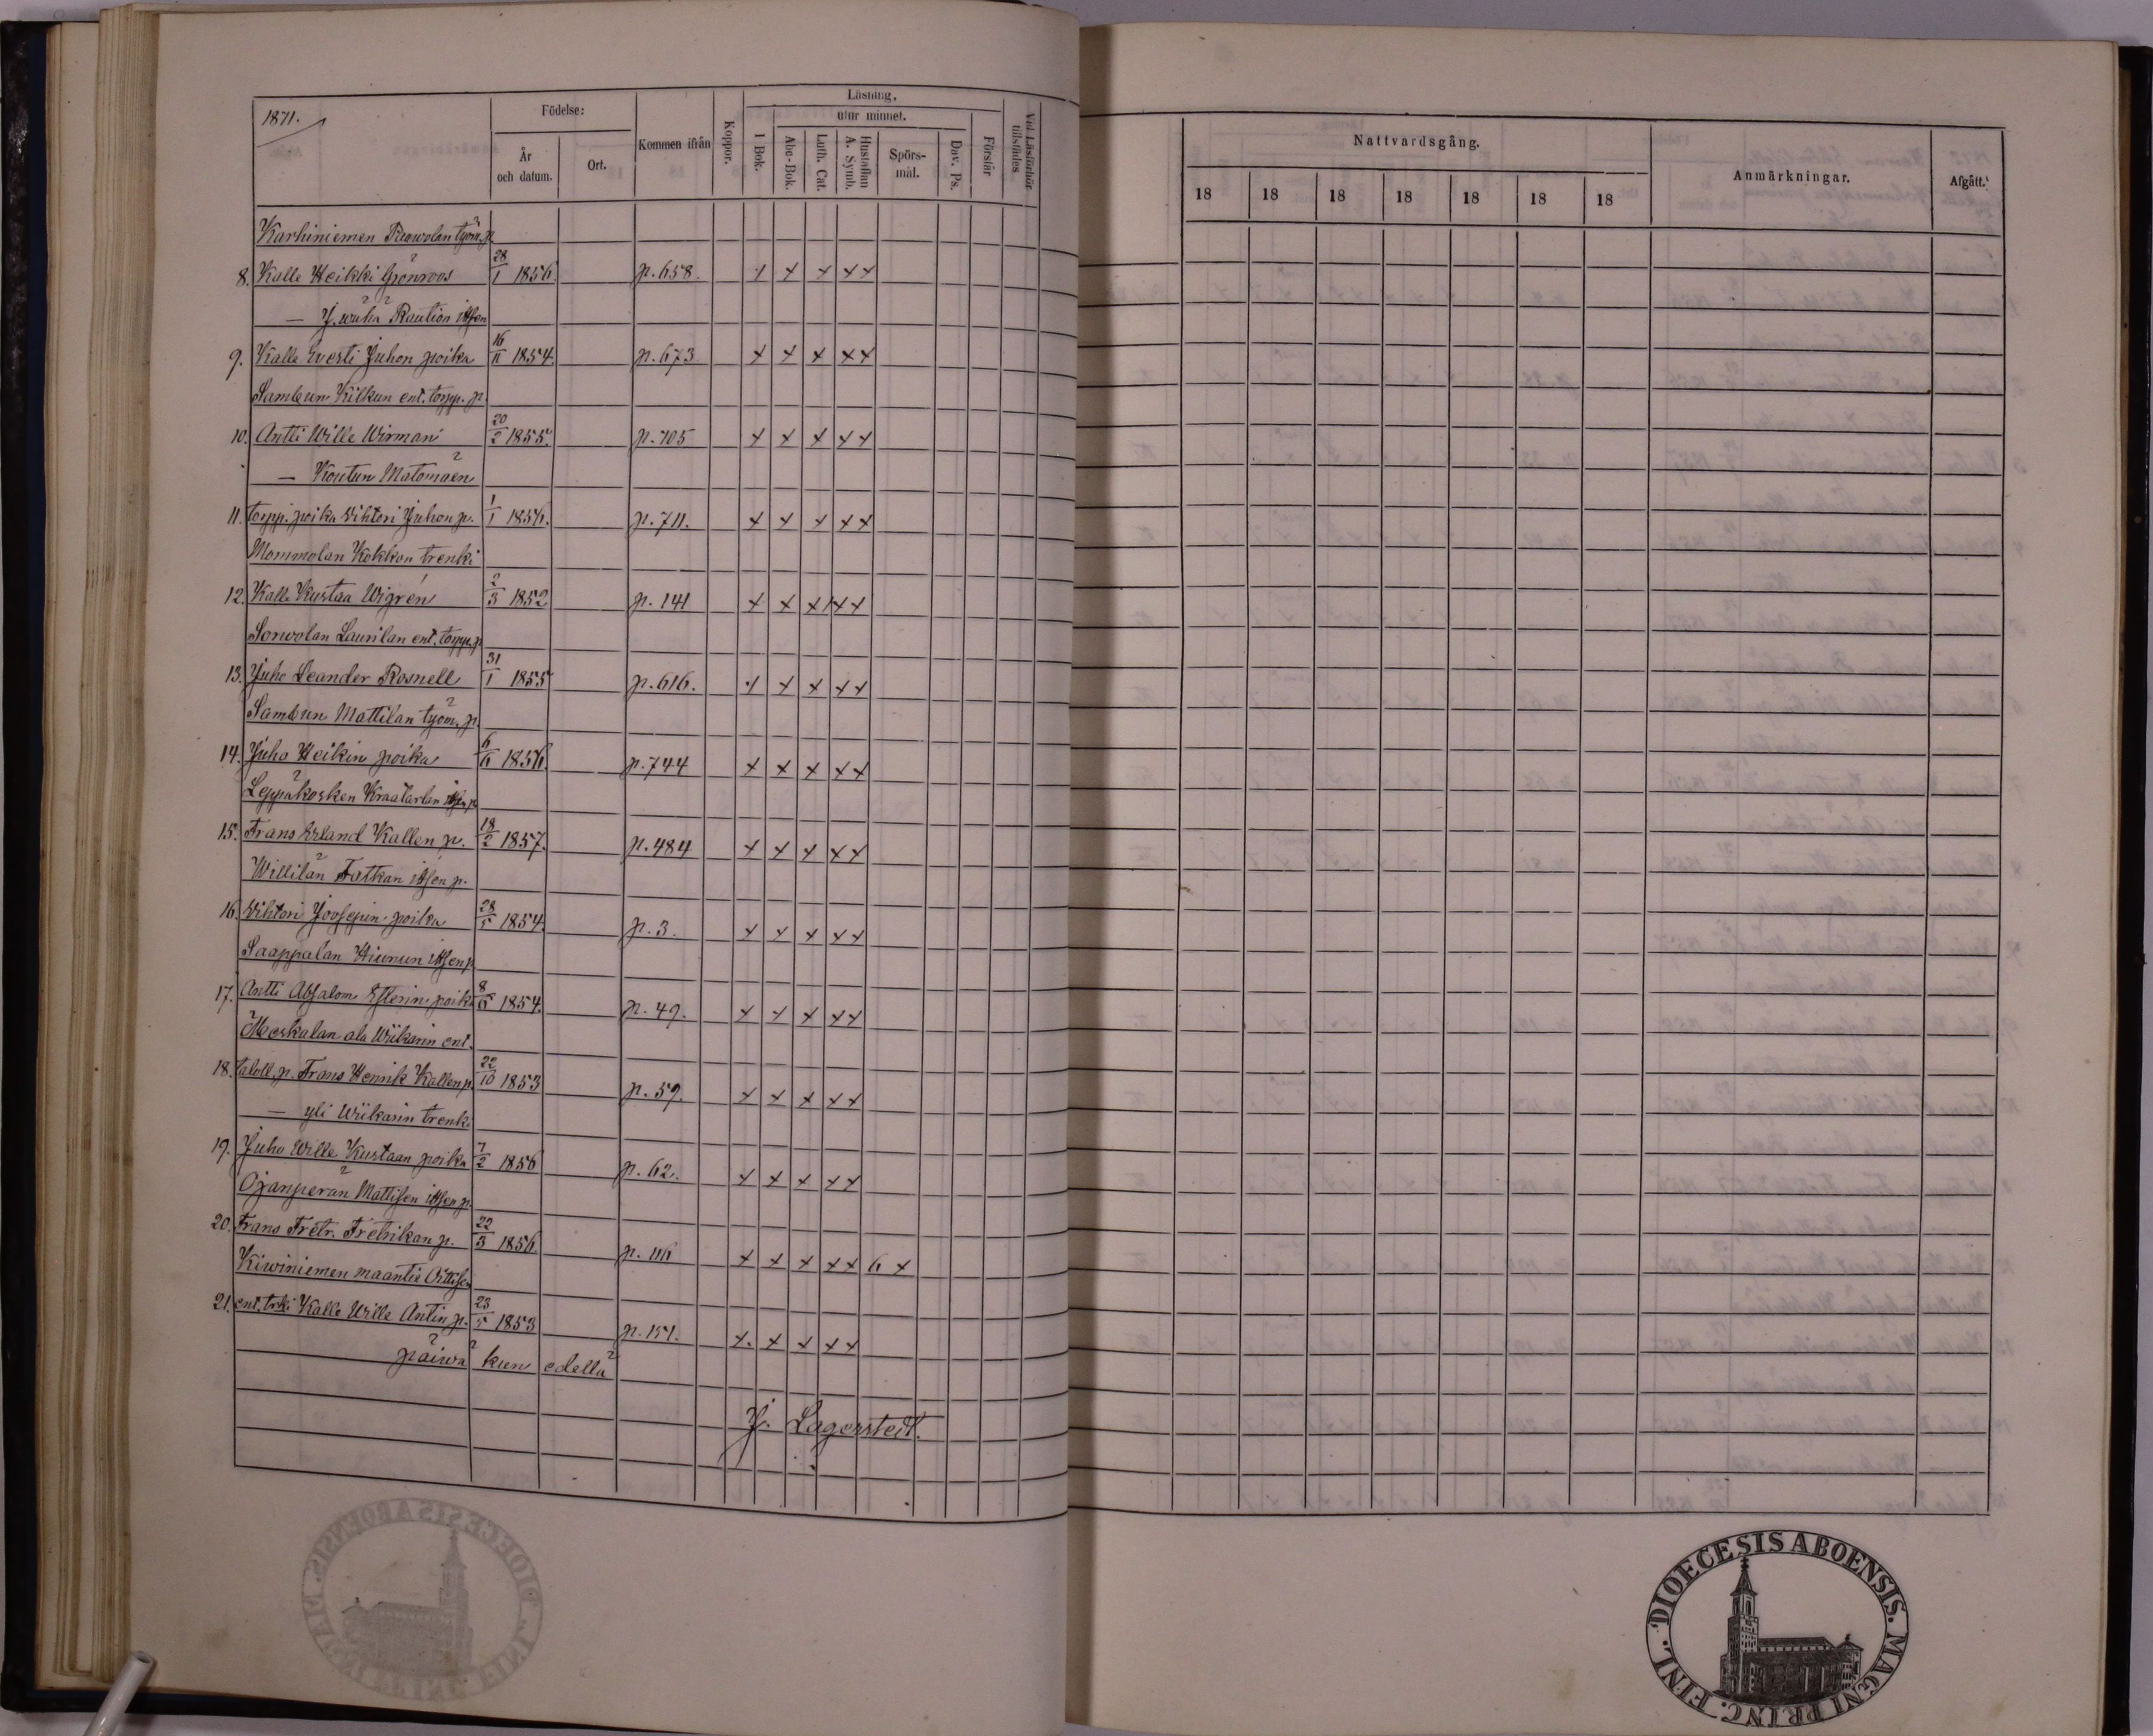 1871.
Födelse:
År och datum.
Ort.
Kommen ifrån
Koppor.
Läsning.
I Bok.
utur minnet.
Abc-Bok.
Luth. Cat.
Hustaflan A. Symb.
Spörs-mål.
Dav. Ps.
Förstår
Vid Läsförhör tillstädes
Nattvardsgång.
18 18 18 18 18 18 18
Anmärkningar.
Afgått.
Karhiniemen työm. p.
8. Kalle Heikki Grönroos 28/1 1856. p. 658. x x x x x
— Raution itsen
9. Kalle Eversti Juhon poika 16/11 1854. p. 673. x x x x x
Sambun Kilkun ent. torpp. p.
10. Antti Wille Wirman 20/2 1855. p. 705 x x x x x
— Koutun Matomäen
11. torpp. poika Vihtori Juhon p. 1/1 1856. p. 711. x x x x x
Mommolan Kokkon trenki
12. Kalle Kustaa Wigrén 2/3 1852 p. 141 x x x x x
Sorwolan Laurilan ent. torpp. p.
13. Juho Leander Rosnell 31/1 1855 p. 616. x x x x x
Sambun Mattilan työm. p.
14. Juho Heikin poika 6/6 1856. p. 744 x x x x x
Leppäkosken Kraatarlan itsen p.
15. Frans Erland Kallen p. 18/2 1857. p. 484 x x x x x
Willilän Fatkan itsen p.
16. Vihtori Joosepin poika 28/5 1854. p. 3. x x x x x
Saappalan itsen p.
17. Antti Absalom Esterin poika 8/6 1854. p. 49. x x x x x
Meskalan ala Wiikarin ent.
18. taloll. p. Frans Henrik Kallen p. 22/10 1853 p. 59. x x x x x
— yli Wiikarin trenki
19. Juho Wille Kustaan poika 7/2 1856 p. 62. x x x x x
Ojanperän Mattisen itsen p.
20. Frans Fretr. Fretrikan p. 22/3 1856. p. 116 x x x x x 6 x
Kiwiniemen maantie
21. ent. trki Kalle Wille Antin p. 23/5 1853 p. 151. x x x x x
päiwä kun edellä
J. Lagerstedt.
DIOECESIS ABOENSIS. MAGNI PRINC. FINL.